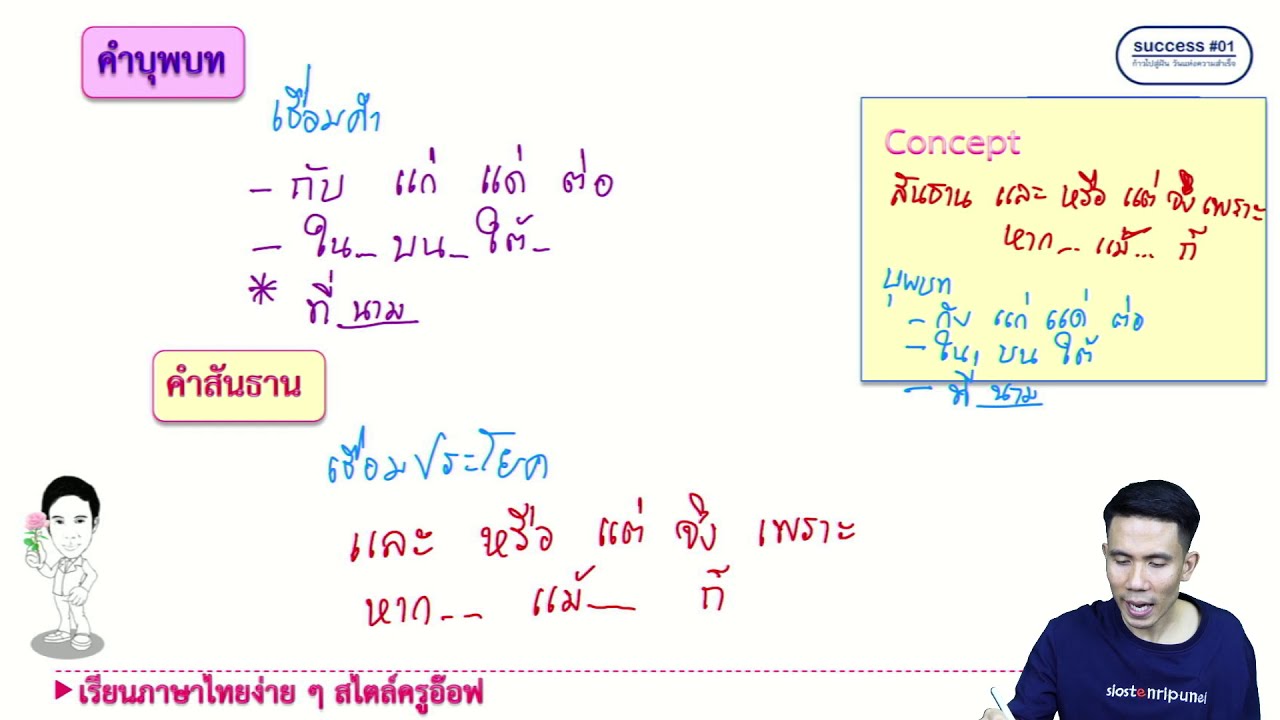 คำบุพบท
เชื่อมคำ
- กับ แก่ แด่ ต่อ
- ใน... บน... ใต้...
* ที่ นาม
คำสันธาน
เชื่อมประโยค
และ หรือ แต่ จึง เพราะ
หาก... แม้... ก็
success #01
ก้าวไปสู่ฝัน วันแห่งความสำเร็จ
Concept
สันธาน และ หรือ แต่ จึง เพราะ
หาก... แม้... ก็
บุพบท
- กับ แก่ แด่ ต่อ
- ใน, บน ใต้
- ที่ นาม
เรียนภาษาไทยง่าย ๆ สไตล์ครูอ๊อฟ